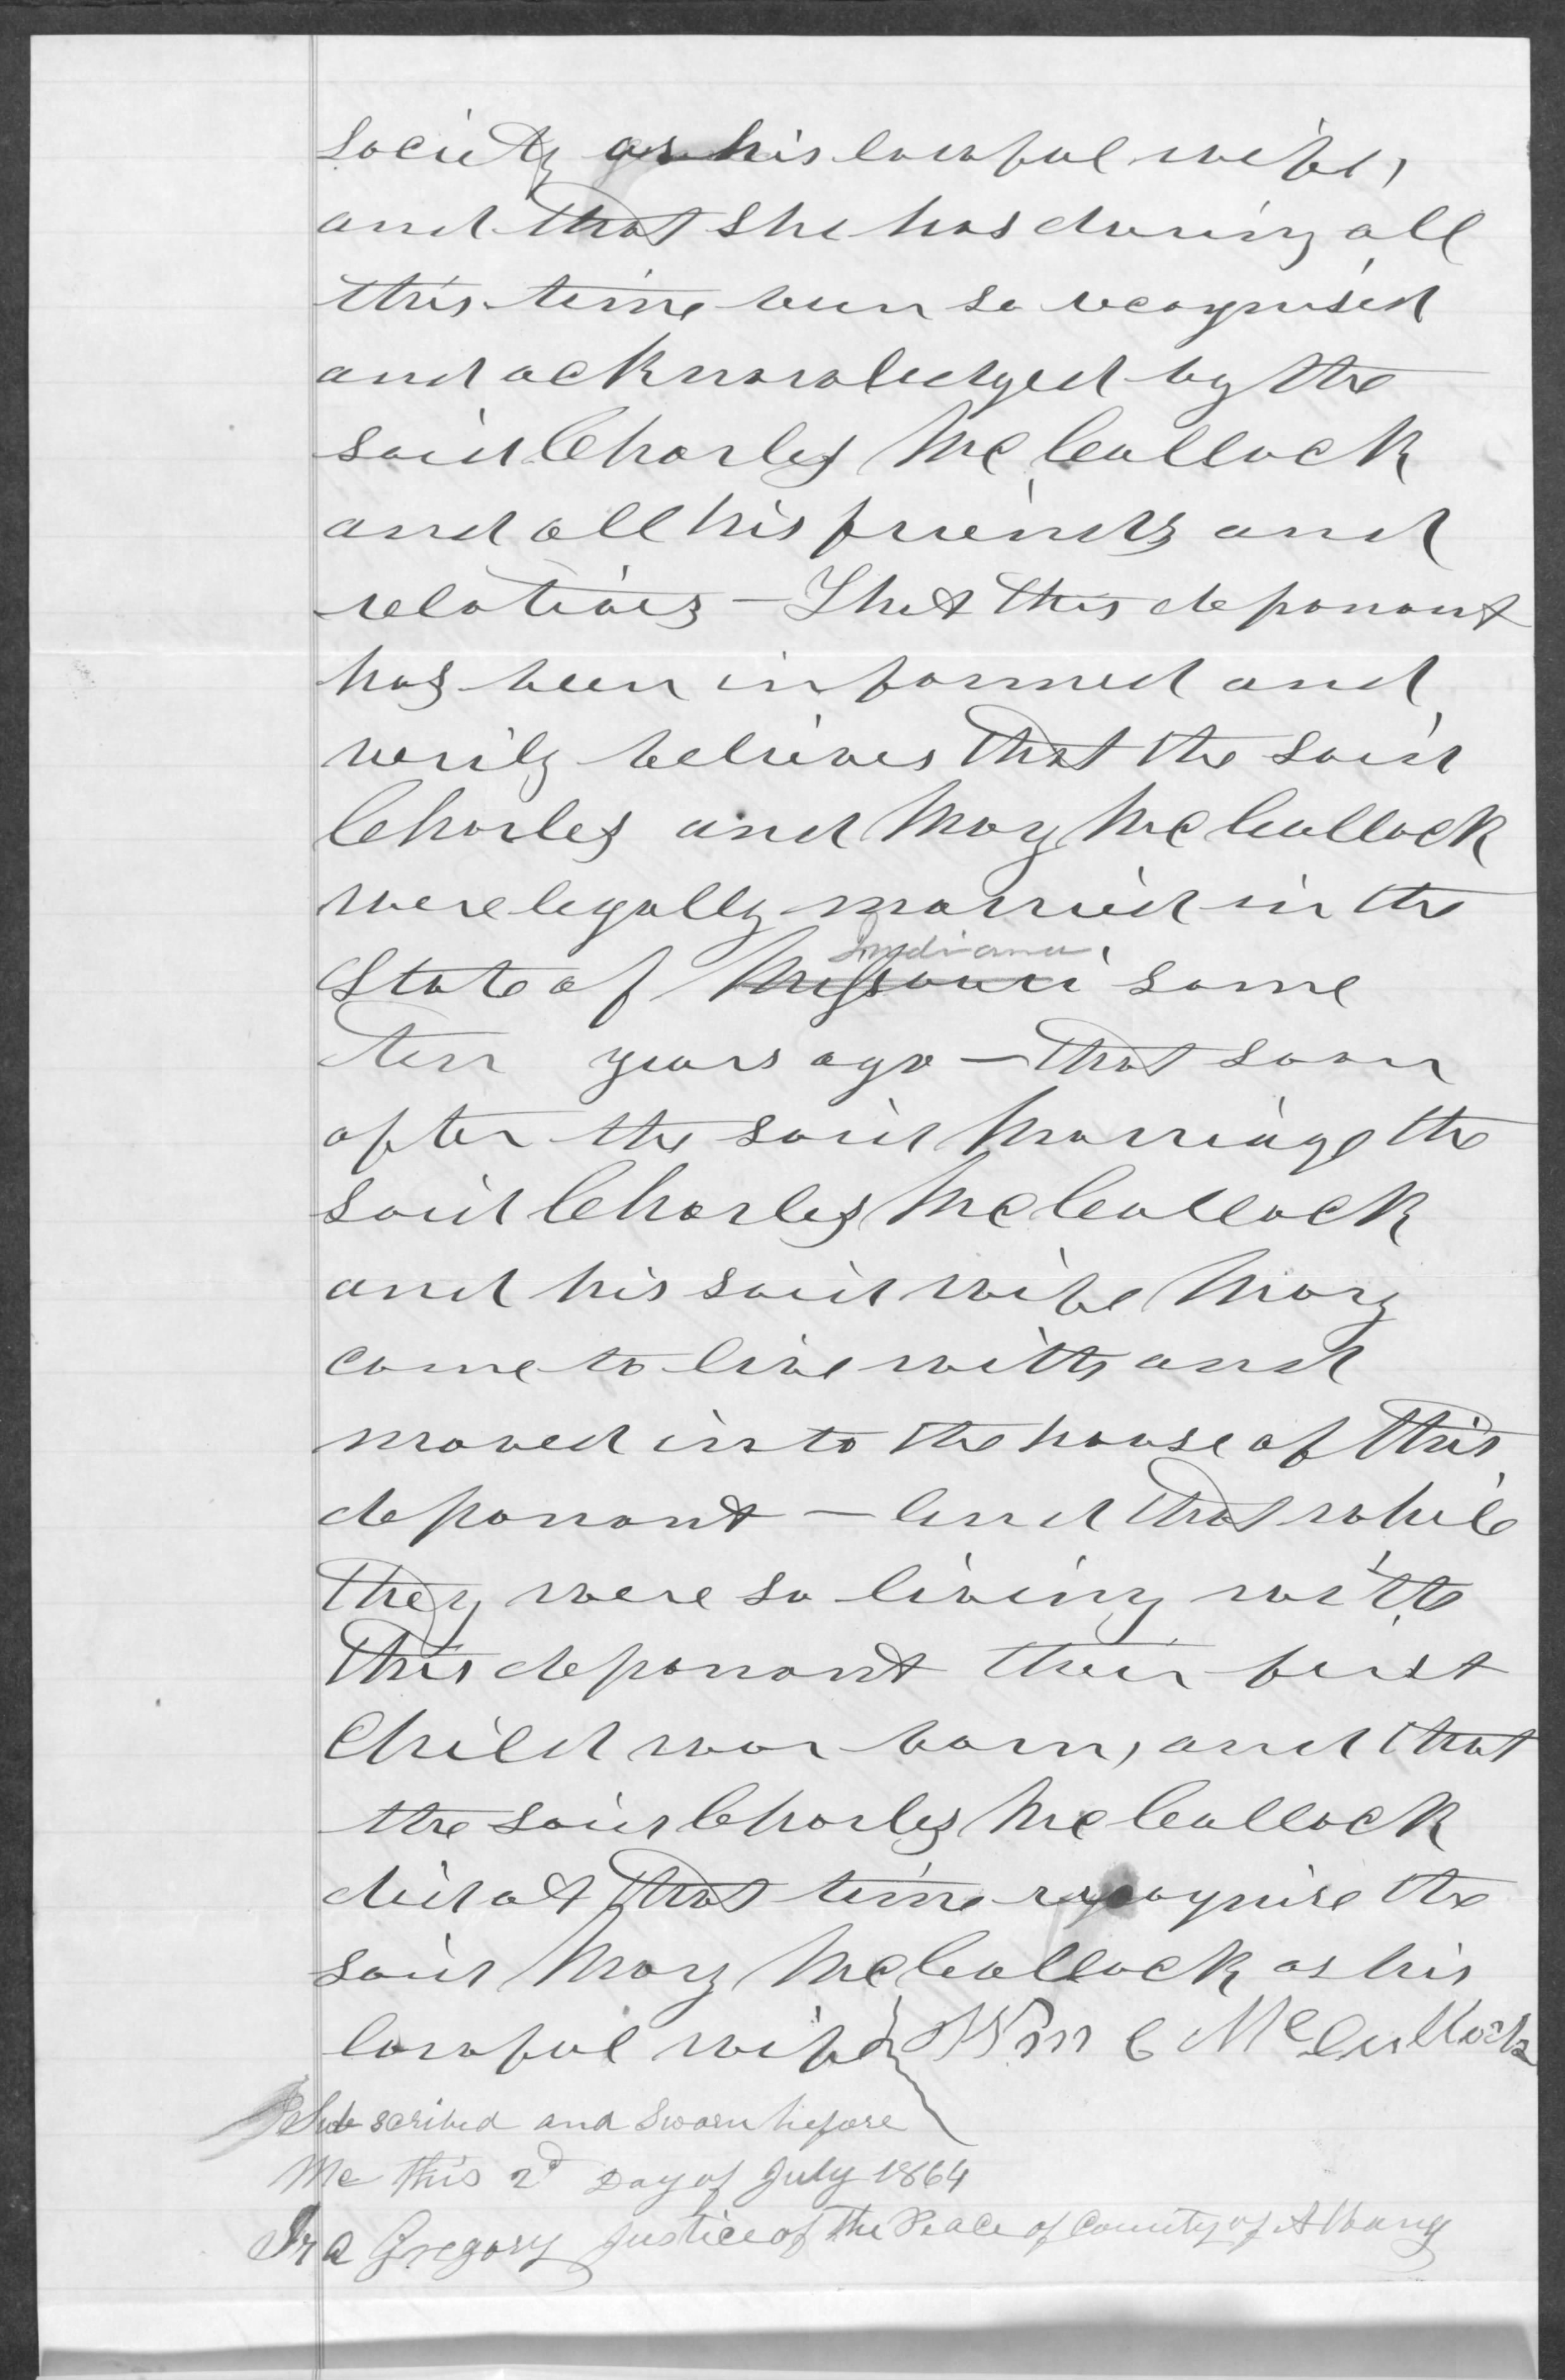 society as his lawful wife,
and that she has during all
this time been so recognised
and acknowledged by the
said Charles McCullock
and all his friends and
relatives — That this deponant
has been informed and
verily believes that the said
Charles and Mary McCullock
were legally married in the
Indiana
State of Missouri some
ten years ago — that soon
after the said Marriage the
said Charles McCullock
and his said wife Mary
came to live with and
moved into the house of this
deponant — And that while
they were so living with
this deponant their first
Child was born, and that
the said Charles McCullock
did at that time recognise the
said Mary McCullock as his
lawful wife Wm C McCullock
Subscribed and Sworn before
Me this 2d Day of July 1864
Ira Gregory Justice of The Peace of County of Albany